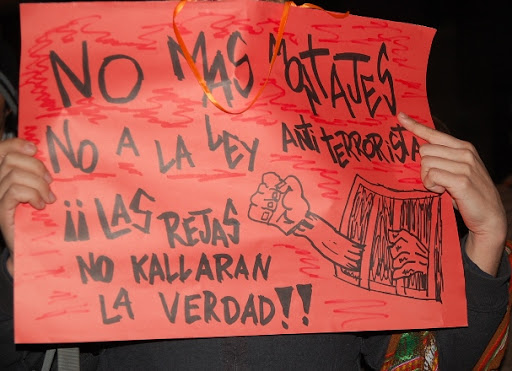 NO MAS MONTAJES
NO A LA LEY ANTITERRORISTA
¡¡LAS REJAS
NO KALLARAN
LA VERDAD!!